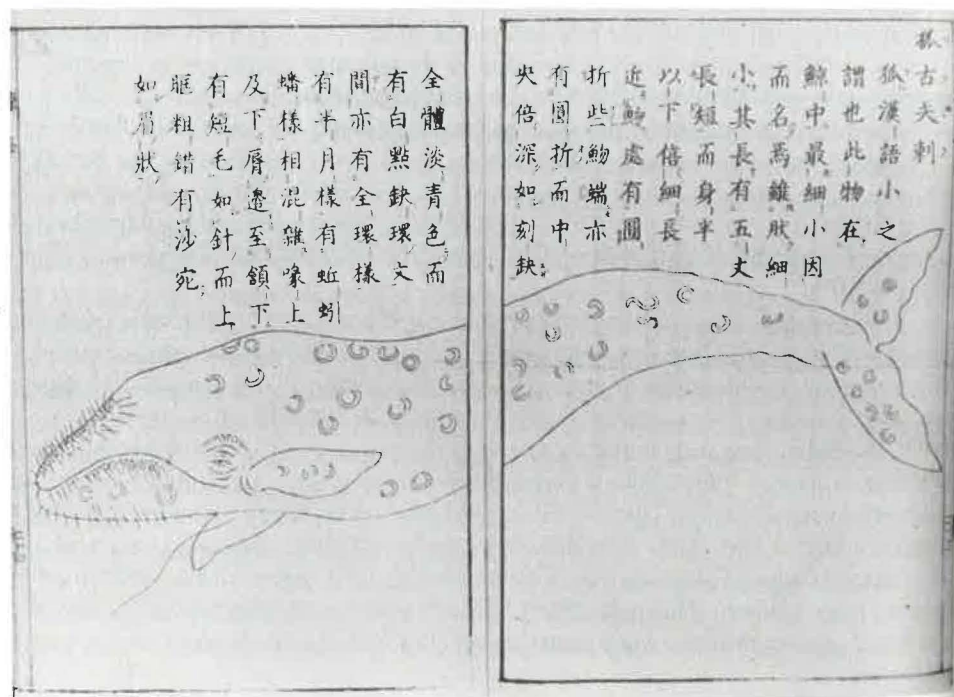 古夫刺
狐漢語小之
謂也此物在
鯨中最細小因
而名焉雖狀細
小其長有五丈
長短而身半
以下倍細長
近魩處有圓
折些魩端亦
有圓折而中
央倍深如刻缺
全體淡青色而
有白點缺環文
間亦有全環樣
有半月樣有蚯蚓
蟠樣相混雜喙上
及下脣邊至頷下
有短毛如針而上
眶粗錯有沙宛
如眉狀